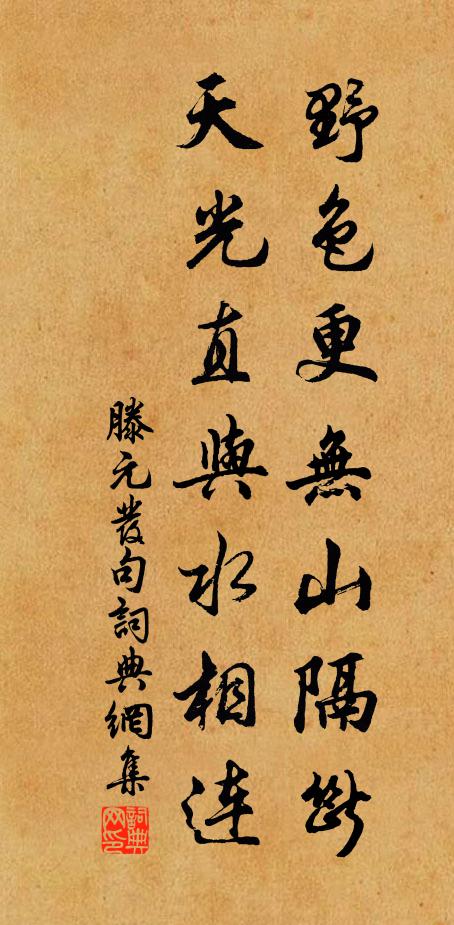 野色更無山隔斷
天光直與水相連
滕元發句詞典網集
詞典网印